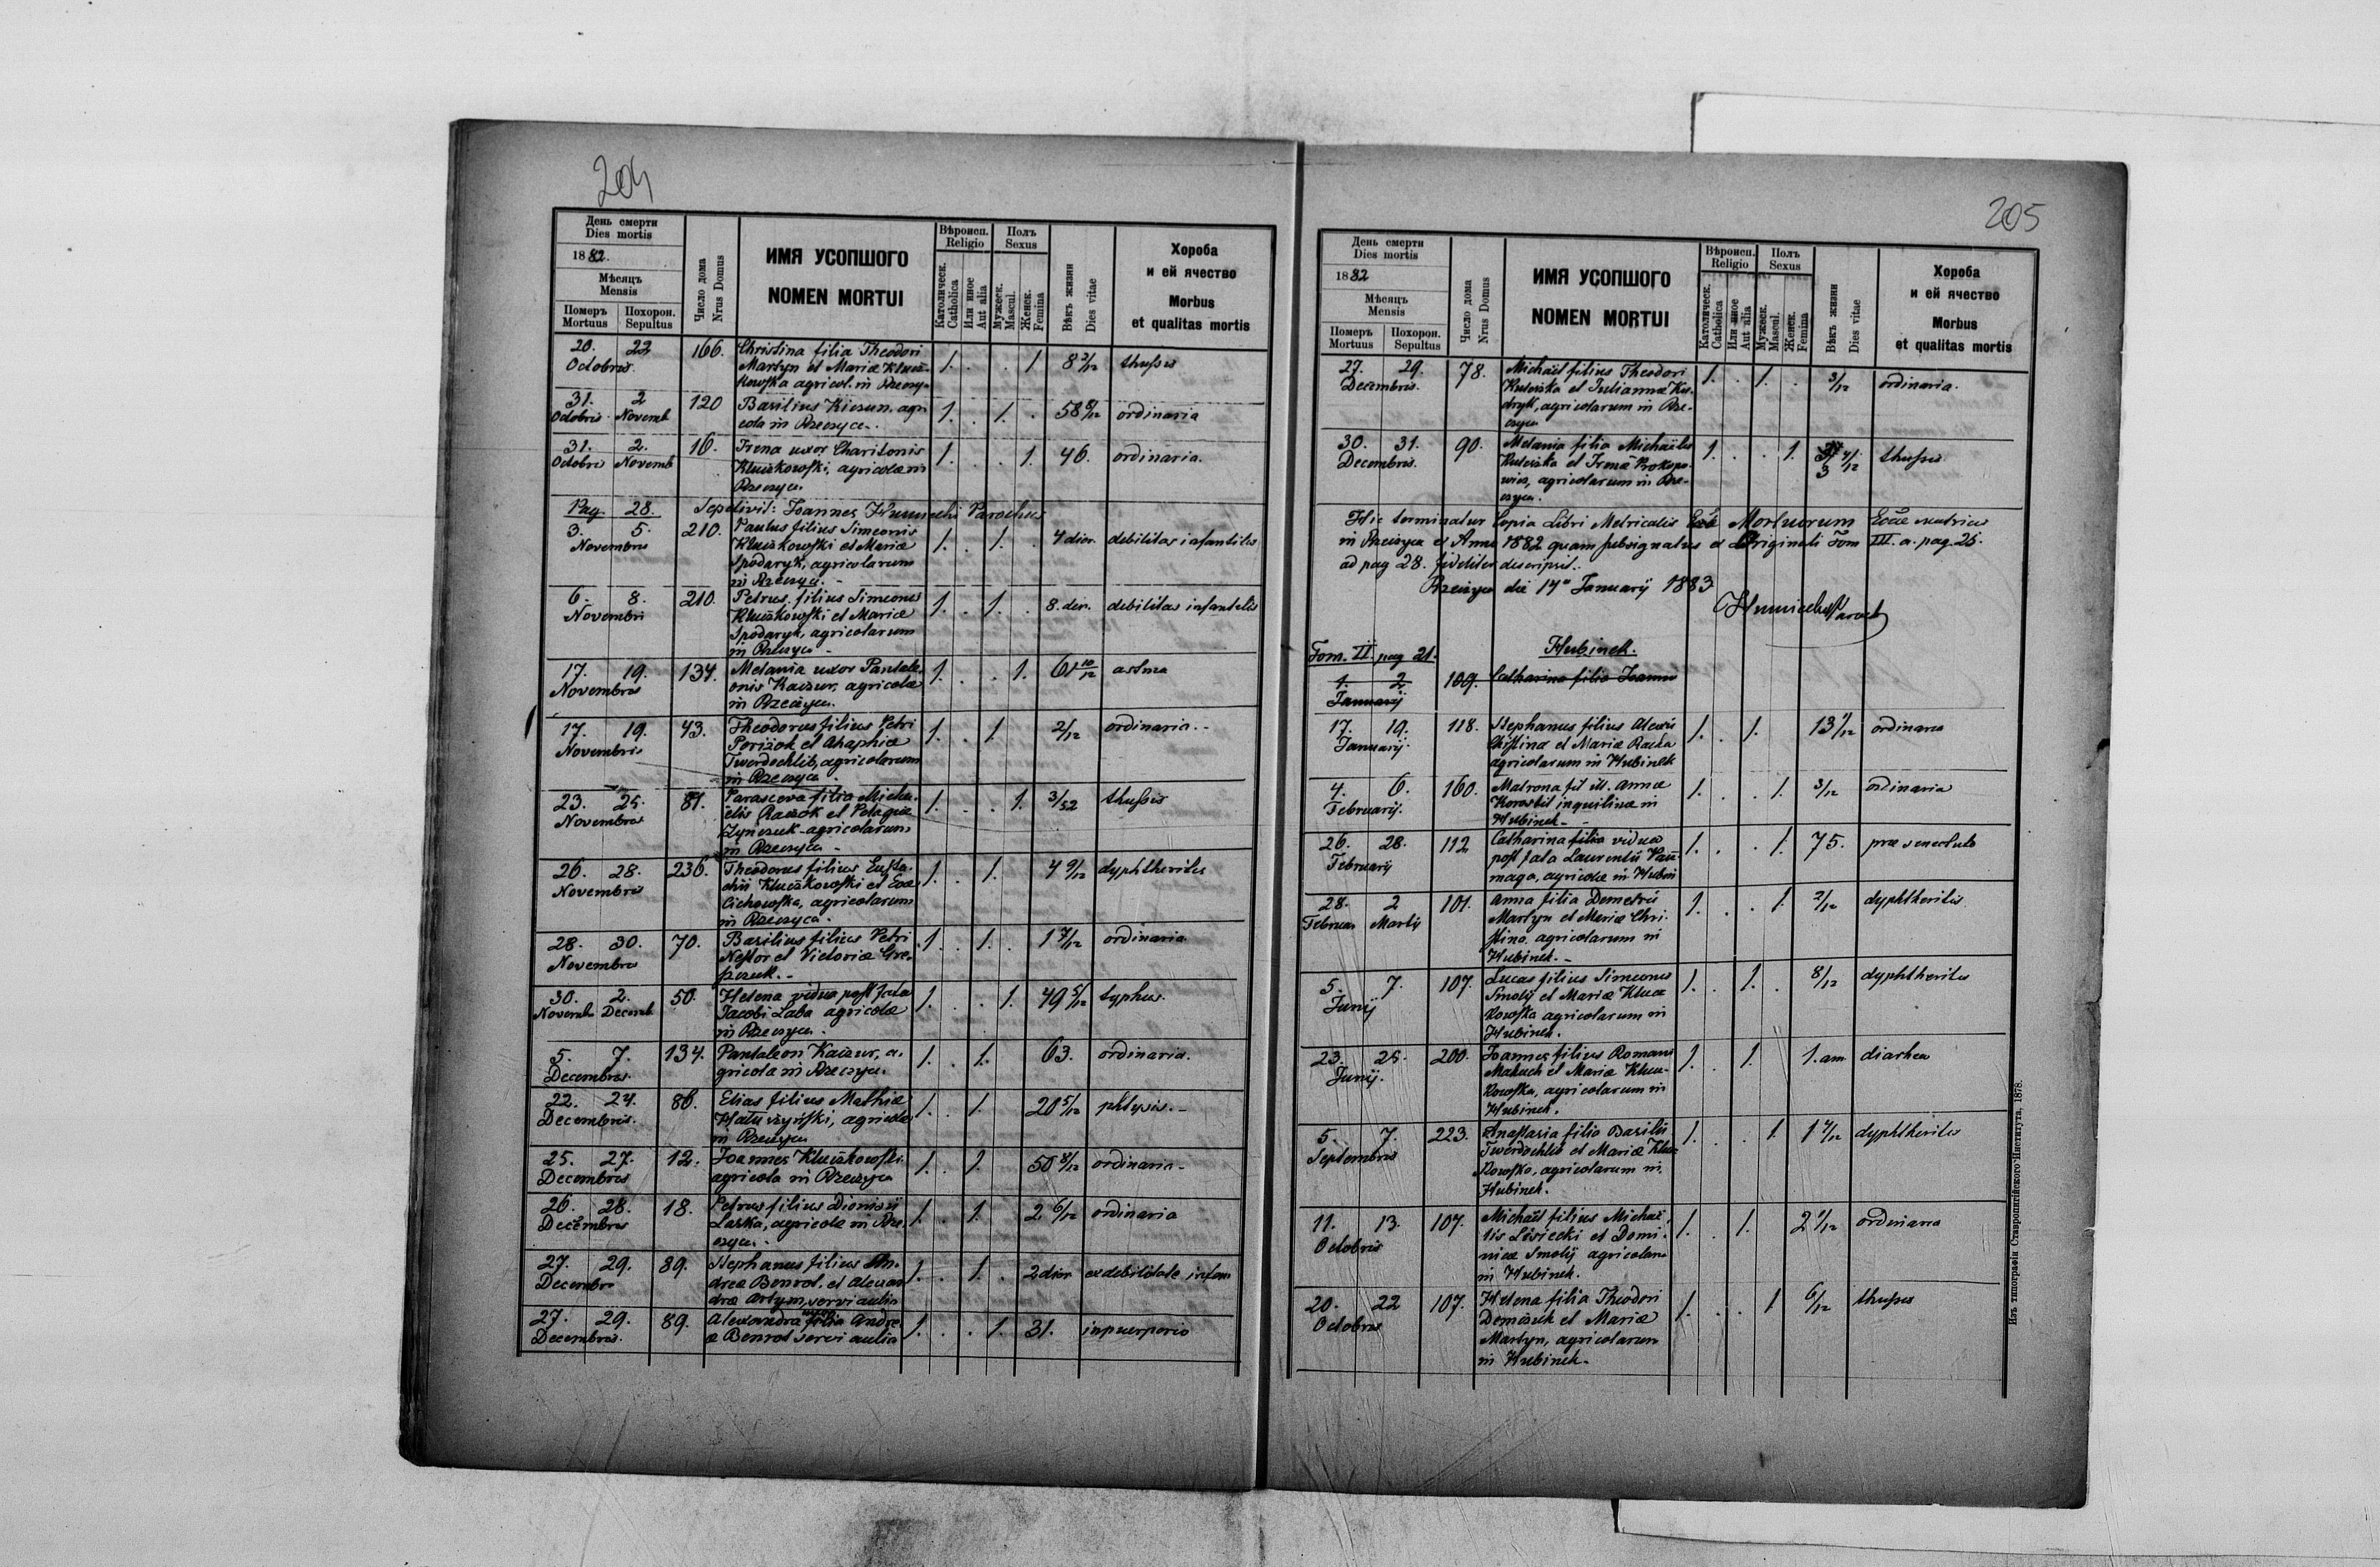 204
День смерти
Dies mortis
1882.
Мѣсяцъ
Mensis
Померъ Похорон.
Mortuus Sepultus
Число дома
Nrus Domus
ИМЯ УСОПШОГО
NOMEN MORTUI
Вѣроисп.
Religio
Католическ.
Catholica
Или иное
Aut alia
Полъ
Sexus
Мужеск.
Mascul.
Женск.
Femina
Вѣкъ жизни
Dies vitae
Хороба
и ей ячество
Morbus
et qualitas mortis
20. 22 166. Christina filia Theodori
Octobris. Martyn et Mariæ Klucz- 1. . . 1. 8 2/12 thussis
kowska agricol. in Rzeczy-
31. 2 120 Basilius Kiczun, agri
Octobris Novemb cola in Rzeczyca. 1. . 1. . 58 8/12 ordinaria
31. 2. 16. Irena uxor Charitonis
Octobris Novemb Kluczkowski, agricolæ in 1. . . 1. 46. ordinaria.
Rzeczyca
Pag. 28. Sepelivit: Joannes Parochus
3. 5. 210. Paulus filius Simeonis
Novembris Kluczkowski et Mariæ 1. . 1. . 4 dier. debilitas infantilis
Spodaryk, agricolarum
in Rzeczyca. -
6. 8. 210. Petrus filius Simeonis
Novembris Kluczkowski et Mariæ 1. . 1. . 8. dier. debilitas infantilis
Spodaryk, agricolarum
in Rzeczyca -
17. 19. 134. Melania uxor Pantale-
Novembris onis Kaczur, agricolæ 1. . . 1. 61 10/12 astma
in Rzeczyca.
17. 19. 43. Theodorus filius Petri
Novembris Porizok et Ahaphiæ 1. . 1. 2/12 ordinaria. -
Twerdochlib, agricolarum
in Rzeczyca.
23. 25. 81. Parasceva filia Micha-
Novembris elis Raczok et Pelagiæ 1. . . 1. 3/52 thussis
agricolarum
in Rzeczyca -
26. 28. 236. Theodorus filius Eusta-
Novembris chii Kluczkowski et Evæ 1. . 1. 4 9/12 dyphtheritis
Cichowska, agricolarum
in Rzeczyca.
28. 30. 70. Basilius filius Petri
Novembris Nestor et Victoriæ Gre- 1. . 1. . 1 7/12 ordinaria
szczuk. -
30. 2. 50. Helena vidua post fata
Novemb Decemb Jacobi Laba agricolæ 1. . . 1. 49 5/12 typhus.
in Rzeczyca.
5. 7. 134. Pantaleon Kaczur, a-
Decembris. gricola in Rzeczyca. 1. . 1. 63. ordinaria.
22. 24. 86. Elias filius Mathiæ
Decembris. agricola 1. . 1. 20 5/12 phtysis. -
in Rzeczyca
25. 27. 12. Joannes Kluczkowski
Decembris agricola in Rzeczyca 1. . 1. 50 8/12 ordinaria -
26. 28. 18. Petrus filius Dionisii
Decembris Laska, agricolæ in Rze- 1. . 1. 2 6/12 ordinaria
czyca.
27. 29. 89. Stephanus filius An-
Decembris dreæ Benrot. et Alexan 1. . 1. . 2 dier ex debilitate infan
dræ Artym, servi aulic
27. 29. 89. Alexandra filia uxor Andre-
Decembris. æ Benrot servi aulic 1. . . 1. 31. in puerperio
205
День смерти
Dies mortis
1882
Мѣсяцъ
Mensis
Померъ Похорон.
Mortuus Sepultus
Число дома
Nrus Domus
ИМЯ УСОПШОГО
NOMEN MORTUI
Вѣроисп.
Religio
Католическ.
Catholica
Или иное
Aut alia
Полъ
Sexus
Мужеск.
Mascul.
Женск.
Femina
Вѣкъ жизни
Dies vitae
Хороба
и ей ячество
Morbus
et qualitas mortis
27. 29. 78. Michaël filius Theodori
Decembris. et Juliannæ Ku- 1. . 1. . 3/12 ordinaria.
dryk, agricolarum in Rze-
czyca
30. 31. 90. Melania filia Michaëlis
Decembris. et Irenæ Prokopo- 1. . . 1. 3 4/12 thussis
wicz, agricolarum in Rze-
czyca.
Hic terminatur Copia Libri Metricalis Mortuorum Eccæ matricis
in Rzeczyca ex Anno 1882 quam subsignatus ex Originali Tom III. a. pag. 25.
ad pag 28. fideliter descripsit.
Rzeczyca die 14a Januarij 1883
Paroch
Tom. II. pag 21. Hubinek.
1. 2 109. Catharina filia Joannis
Januarij
17. 19. 118. Stephanus filius Alexii
Januarij. Chistina et Mariæ Racka 1. . 1. 13 1/12 ordinaria
agricolarum in Hubinek
4. 6. 160. Matrona fil ill. Annæ
Februarij. inquilinæ in 1. . . 1. 3/12 ordinaria
Hubinek -
26. 28. 112 Catharina filia vidua
Februarij post fata Laurentii Pan- 1. . . 1. 75. præ senectute
maga, agricolæ in Hubin
28. 2 101. Anna filia Demetrii
Februar Martij Martyn et Mariæ Chri- 1. . . 1. 2/12 dyphtheritis
stina agricolarum in
Hubinek. -
5. 7. 107. Lucas filius Simeonis
Junij Smolij et Mariæ Klucz 1. . 1. . 8/12 dyphtheritis
kowska agricolarum in
Hubinek.
23. 25. 200. Joannes filius Romani
Junij. Makuch et Mariæ Klucz- 1. . 1. 1. an diarhea
kowska, agricolarum in
Hubinek.
5. 7. 223. Anastasia filia Basilii
Septembris Twerdochlib et Mariæ Klucz 1. . . 1. 1 4/12 dyphtheritis
kowska, agricolarum in
Hubinek.
11. 13. 107. Michaël filius Michaë-
Octobris lis Lisiecki et Domi- 1. . 1. 2 1/12 ordinaria
nicæ Smolij agricolaru
in Hubinek.
20. 22 107. Helena filia Theodori
Octobris Demczuk et Mariæ 1. . . 1 6/12 thussis
Martyn, agricolarum
in Hubinek.
Изъ типографіи Ставропигійского Института, 1878.